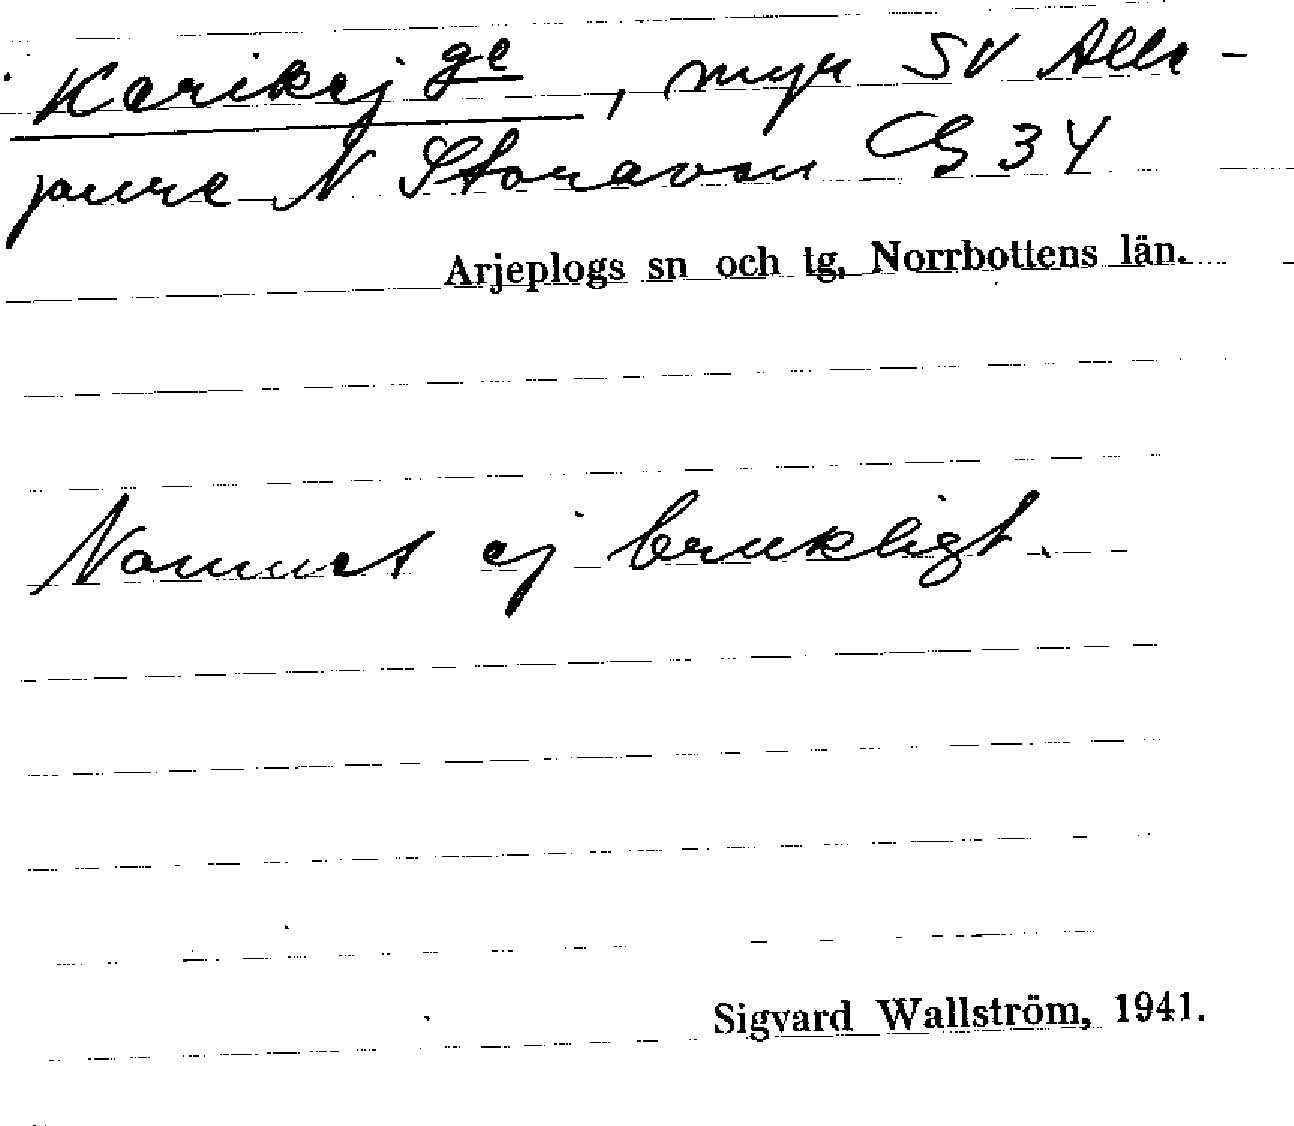 Karikej ge, myr SV Alla-
jaure N Storavan GG 34
Arjeplogs sn och tg, Norrbottens län.
Namnet ej brukligt.
Sigvard Wallström, 1941.